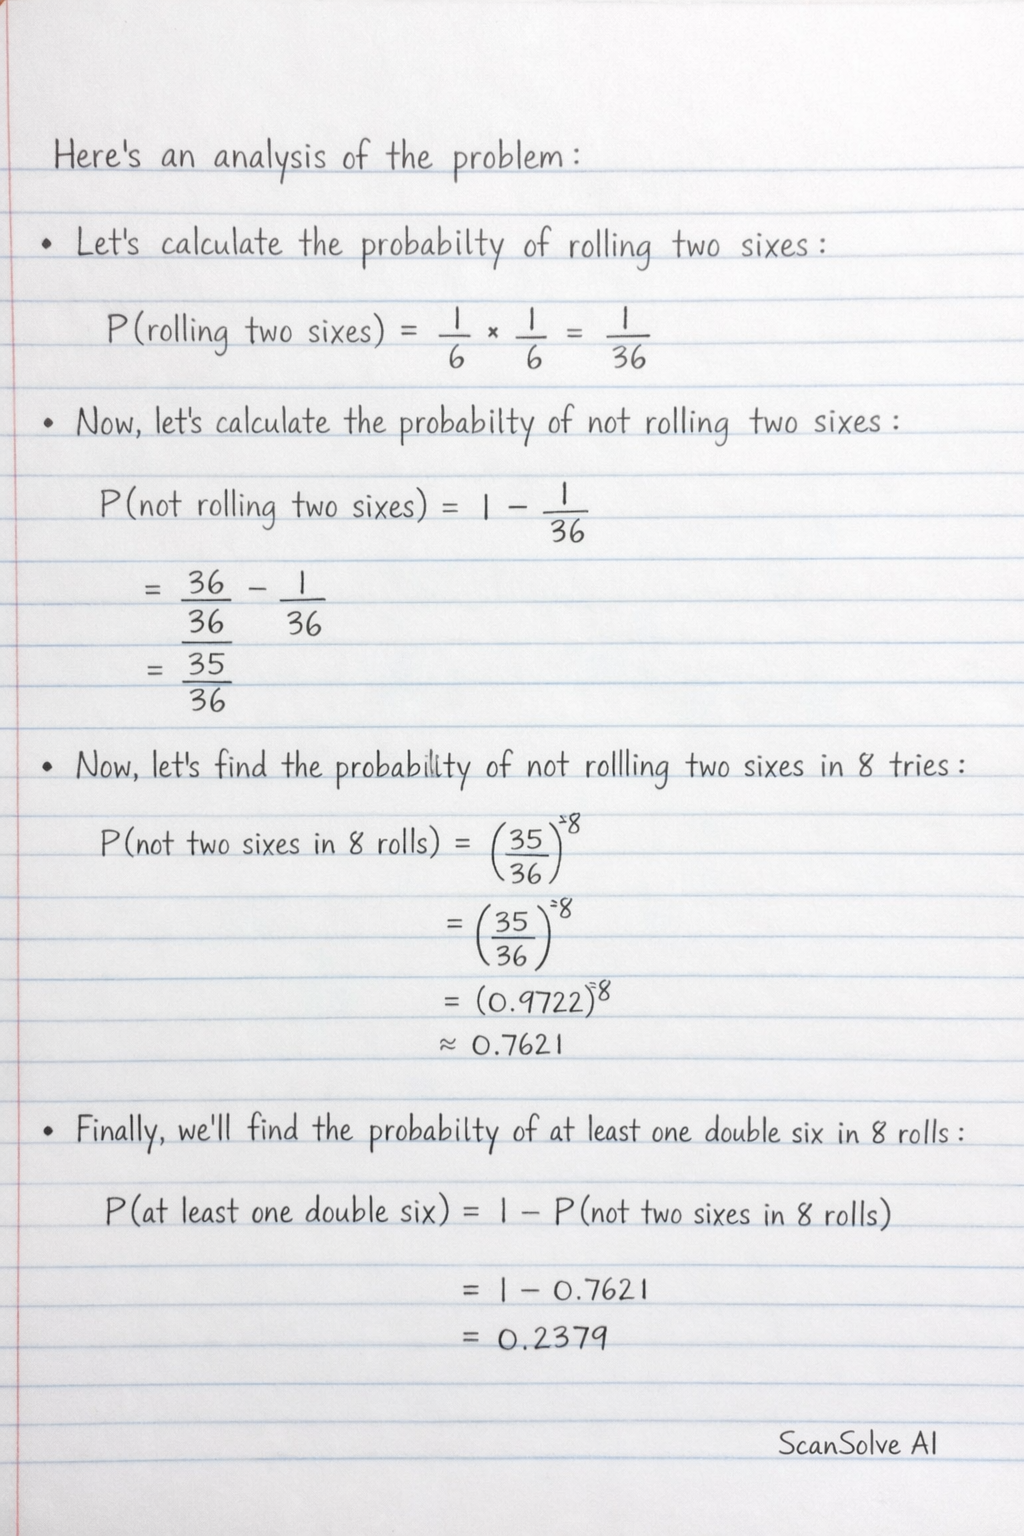 Here's an analysis of the problem:
• Let's calculate the probabilty of rolling two sixes:
P(rolling two sixes) = 1/6 × 1/6 = 1/36
• Now, let's calculate the probabilty of not rolling two sixes:
P(not rolling two sixes) = 1 − 1/36
= 36/36 − 1/36
= 35/36
• Now, let's find the probability of not rollling two sixes in 8 tries:
P(not two sixes in 8 rolls) = (35/36)^=8
= (35/36)^=8
= (0.9722)^=8
≈ 0.7621
• Finally, we'll find the probabilty of at least one double six in 8 rolls:
P(at least one double six) = 1 − P(not two sixes in 8 rolls)
= 1 − 0.7621
= 0.2379
ScanSolve AI